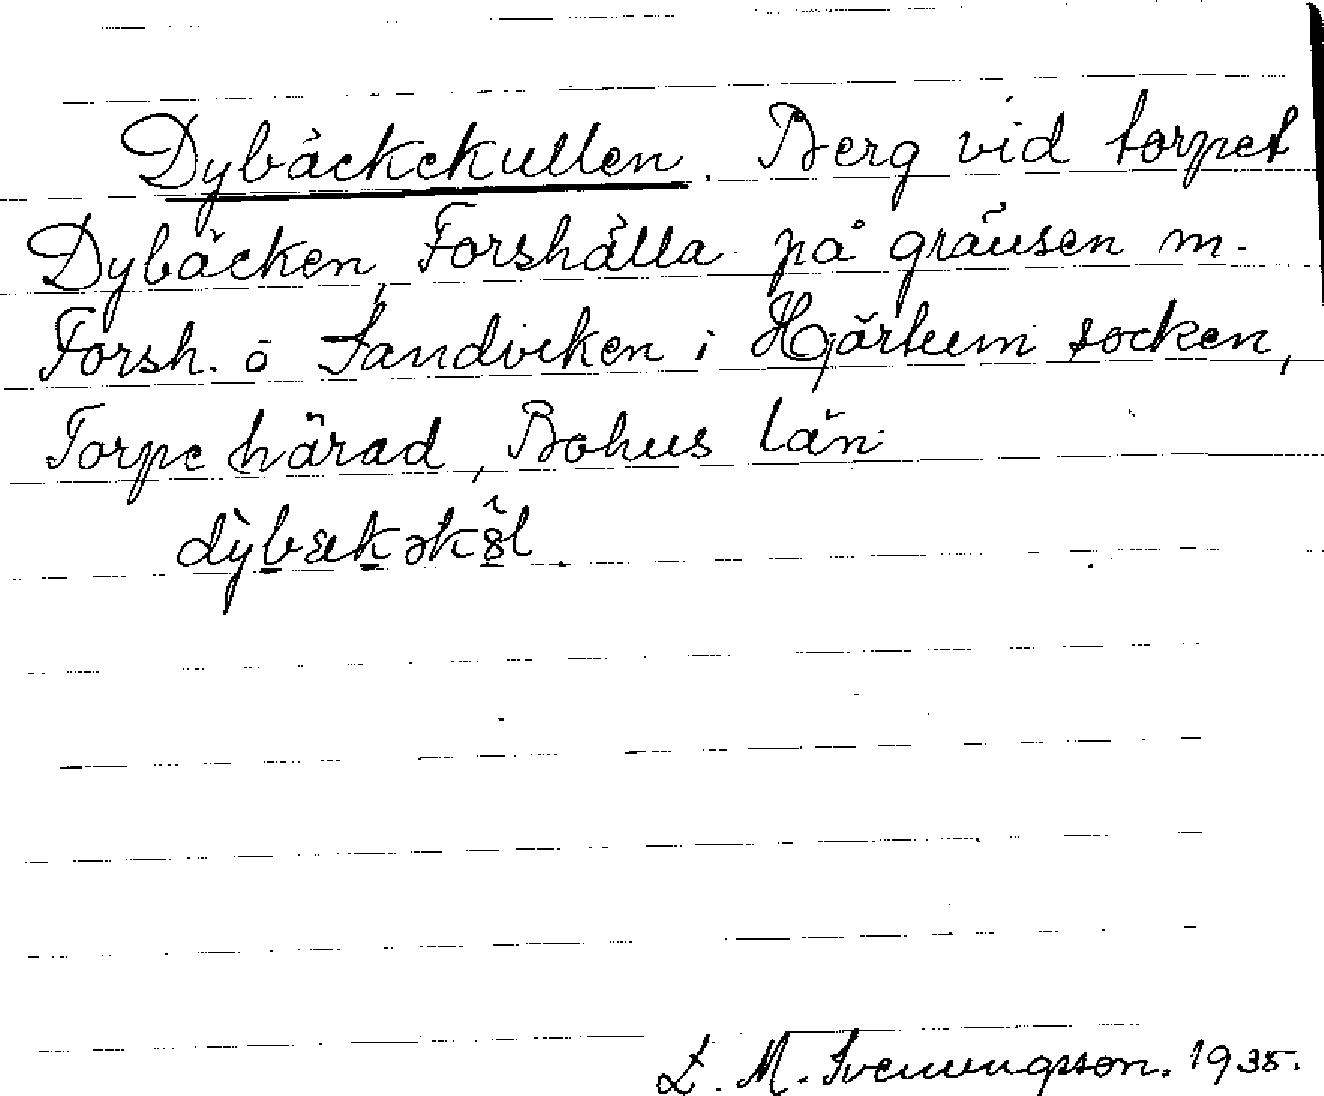 Dybäckekullen. Berg vid torpet
Dybäcken, Forshälla på gränsen m-
Forsh. o Sandviken i Hjärtum socken,
Torpe härad, Bohus län
dỳbækəkŝl.
L. M. Svenungsson. 1935.